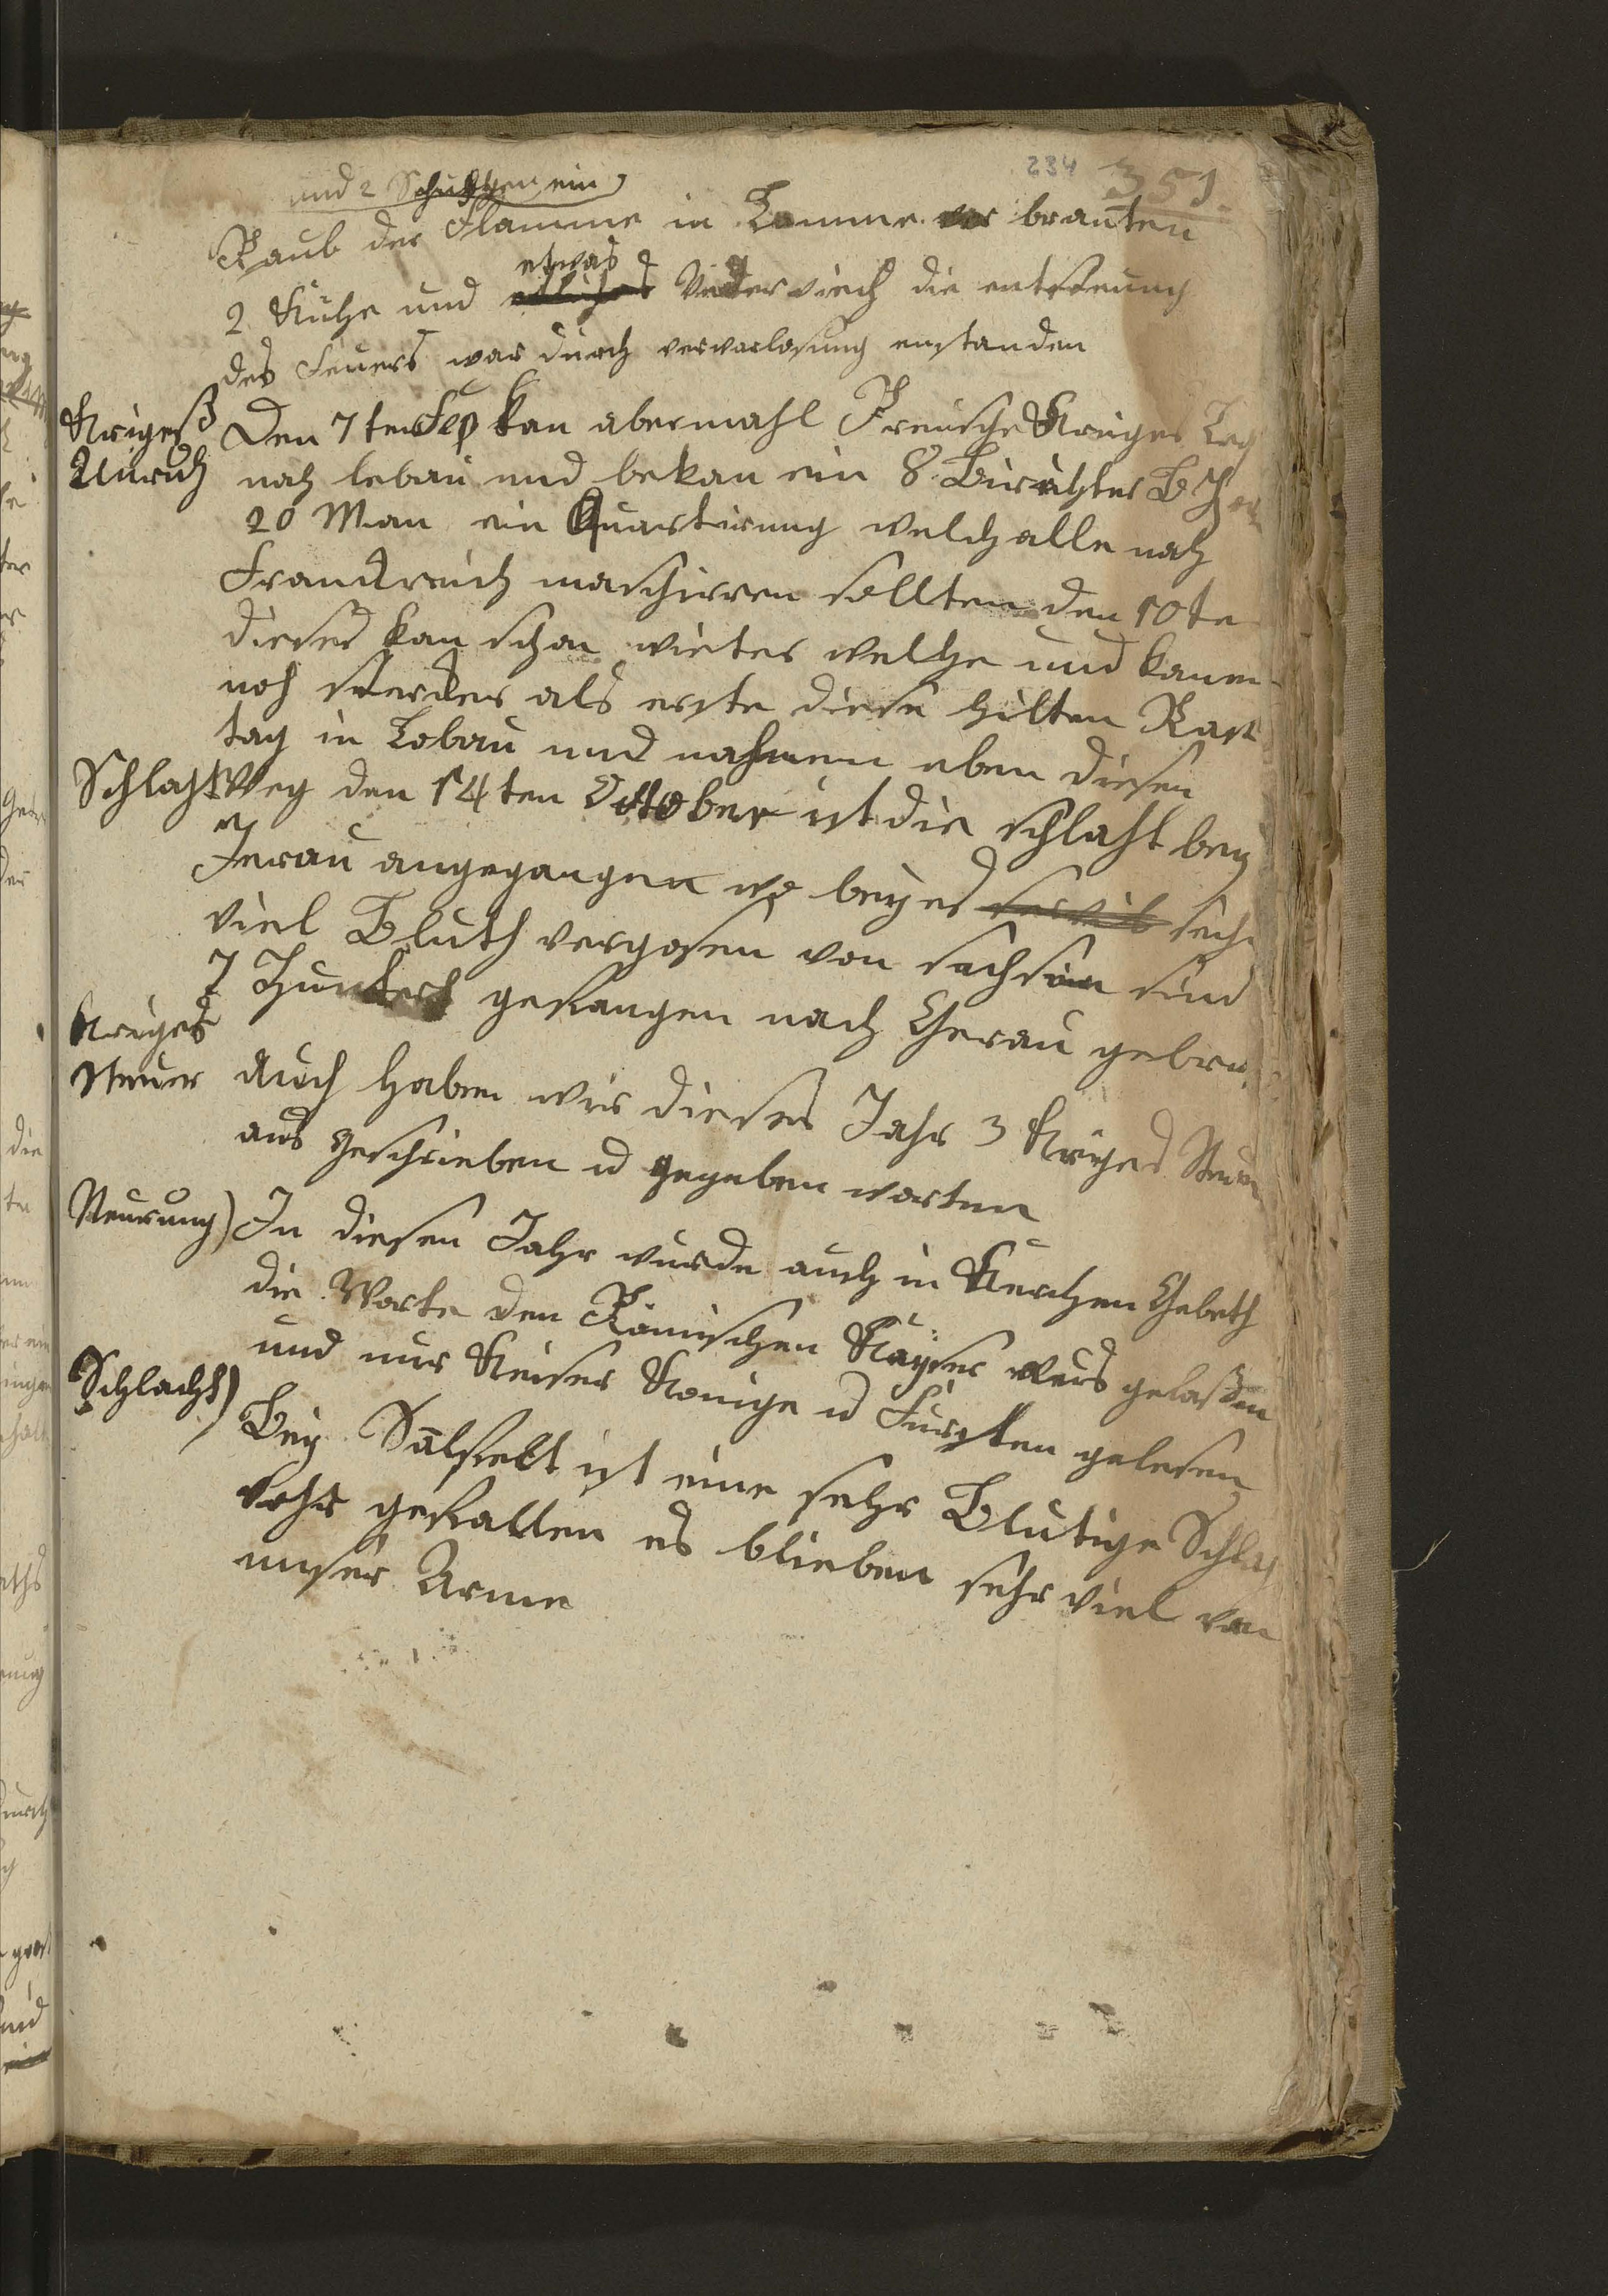 234 351.
und 2 Schuppen ein
Raub der Flamme in Lomme ver branten
2 Kühe und etwas Vederviech die entsteung
des Feuers war durch vervarlosung enstanden
Krigeß Unruh
Den 7ten Sep kan abermahl Preusche Kriges
nach lebau und bekan ein 8.
20 Man ein Quartirung welch alle nach
Franckreich maschirren sollten den 10te
dieses kan schon vieter welche und kamen
noch sterker als erste diese hilten Rast
tag in Lobau und nahmen eben diesen
Schlacht
Weg den 14ten Ocktober ist die schlaht bey
Jenau angegangen wo beyed sich
viel Bluth vergosen von sachsen sind
7 Hundert gefangen nach Gerau gebra
Kriges Steuer
Auch haben wir dieses Jahr 3 Kriges Steuer
aus geschrieben u gegeben worten
Neurung)
In diesen Jahr wurde auch in Kerchen Gebeth
die Worte den Römischen Kayser weg gelaßen
und nur Keiser Konige u Fürsten gelesen
Schlacht)
Bey Salfelt ist eine sehr Blutige Schlach
vohr gefallen es blieben sehr viel von
unser Arme